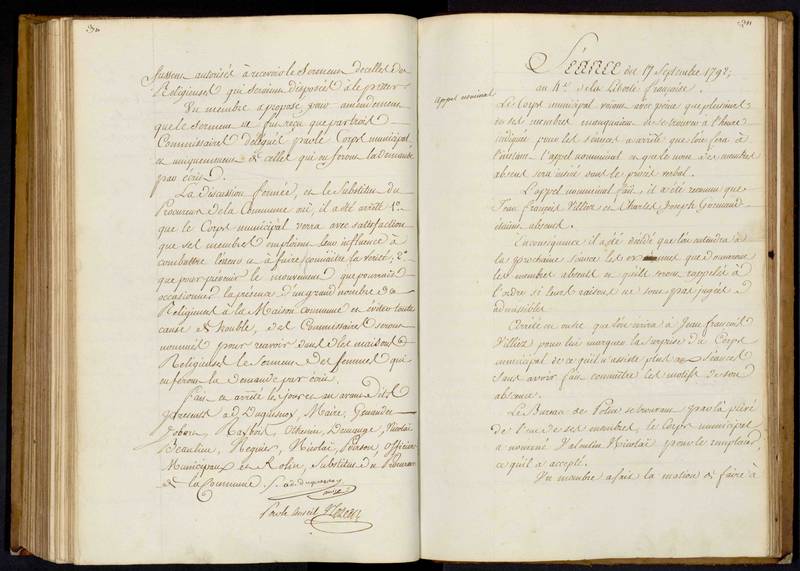 fussent autorisés à recevoir le Serment de celles des
Religieuses qui seraient disposées à le prêter
Un membre a proposé pour amendement
que le Serment ne fut reçu que par trois
Commissaires délégués par le Corps municipal
et uniquement de celles qui en feront la demande
par écrit.
La discussion fermée, et le Substitut du
Procureur de la Commune oui, il a été arrêté 1.º
que le Corps municipal verra avec satisfaction
que ses membres emploient leur influence à
combattre l'erreur à faire connaître la vérité, 2.º
que pour prévenir le mouvement que pourrait
occasionner la présence d'un grand nombre de
Religieuses à la Maison commune et éviter toute
cause de trouble, des Commissaires seront
nommés pour recevoir dans les maisons
Religieuses le Serment des femmes qui
en feront la demande par écrit.
Fait et arrêté les jour et an avant dits
présents ad. Duquesnoy, Maire,
Othenin, Demange, Nicolaï
Beaulieu, Regnier, Nicolaï, Poirson, officiers
Municipaux et Rolin, Substitut du Procureur
de la Commune. ad. duquesnoy
maire
Par le Conseil
Séance du 17 Septembre 1792,
an 4.e de la Liberté française.
Appel nominal
Le Corps municipal voyant avec peine que plusieurs
de ses membres manquaient de se trouver à l'heure
indiquée pour les séances a arrêté que l'on fera à
l'instant l'appel nominal et que le nom des membres
absens sera inséré dans le procès verbal.
L'appel nominal fait, il a été reconnu que
Jean François Villiez et Charles Joseph
étaient absens.
En conséquence il a été décidé que l'on entendra à
la prochaine séance les que donneront
les membres absens et qu'ils seront rappelés à
l'ordre si leurs raisons ne sont pas jugées
admissibles
Arrêté en outre qu'on écrira à Jean françois
Villiez pour lui marquer la surprise du Corps
municipal de ce qu'il n'assiste plus aux Séances
sans avoir fait connaître les motifs de son
absence.
Le Bureau de Police se trouvant par la
de l'un de ses membres, le Corps municipal
a nommé Valentin Nicolaï pour le remplacer,
ce qu'il a accepté.
Un membre a fait la motion de faire à